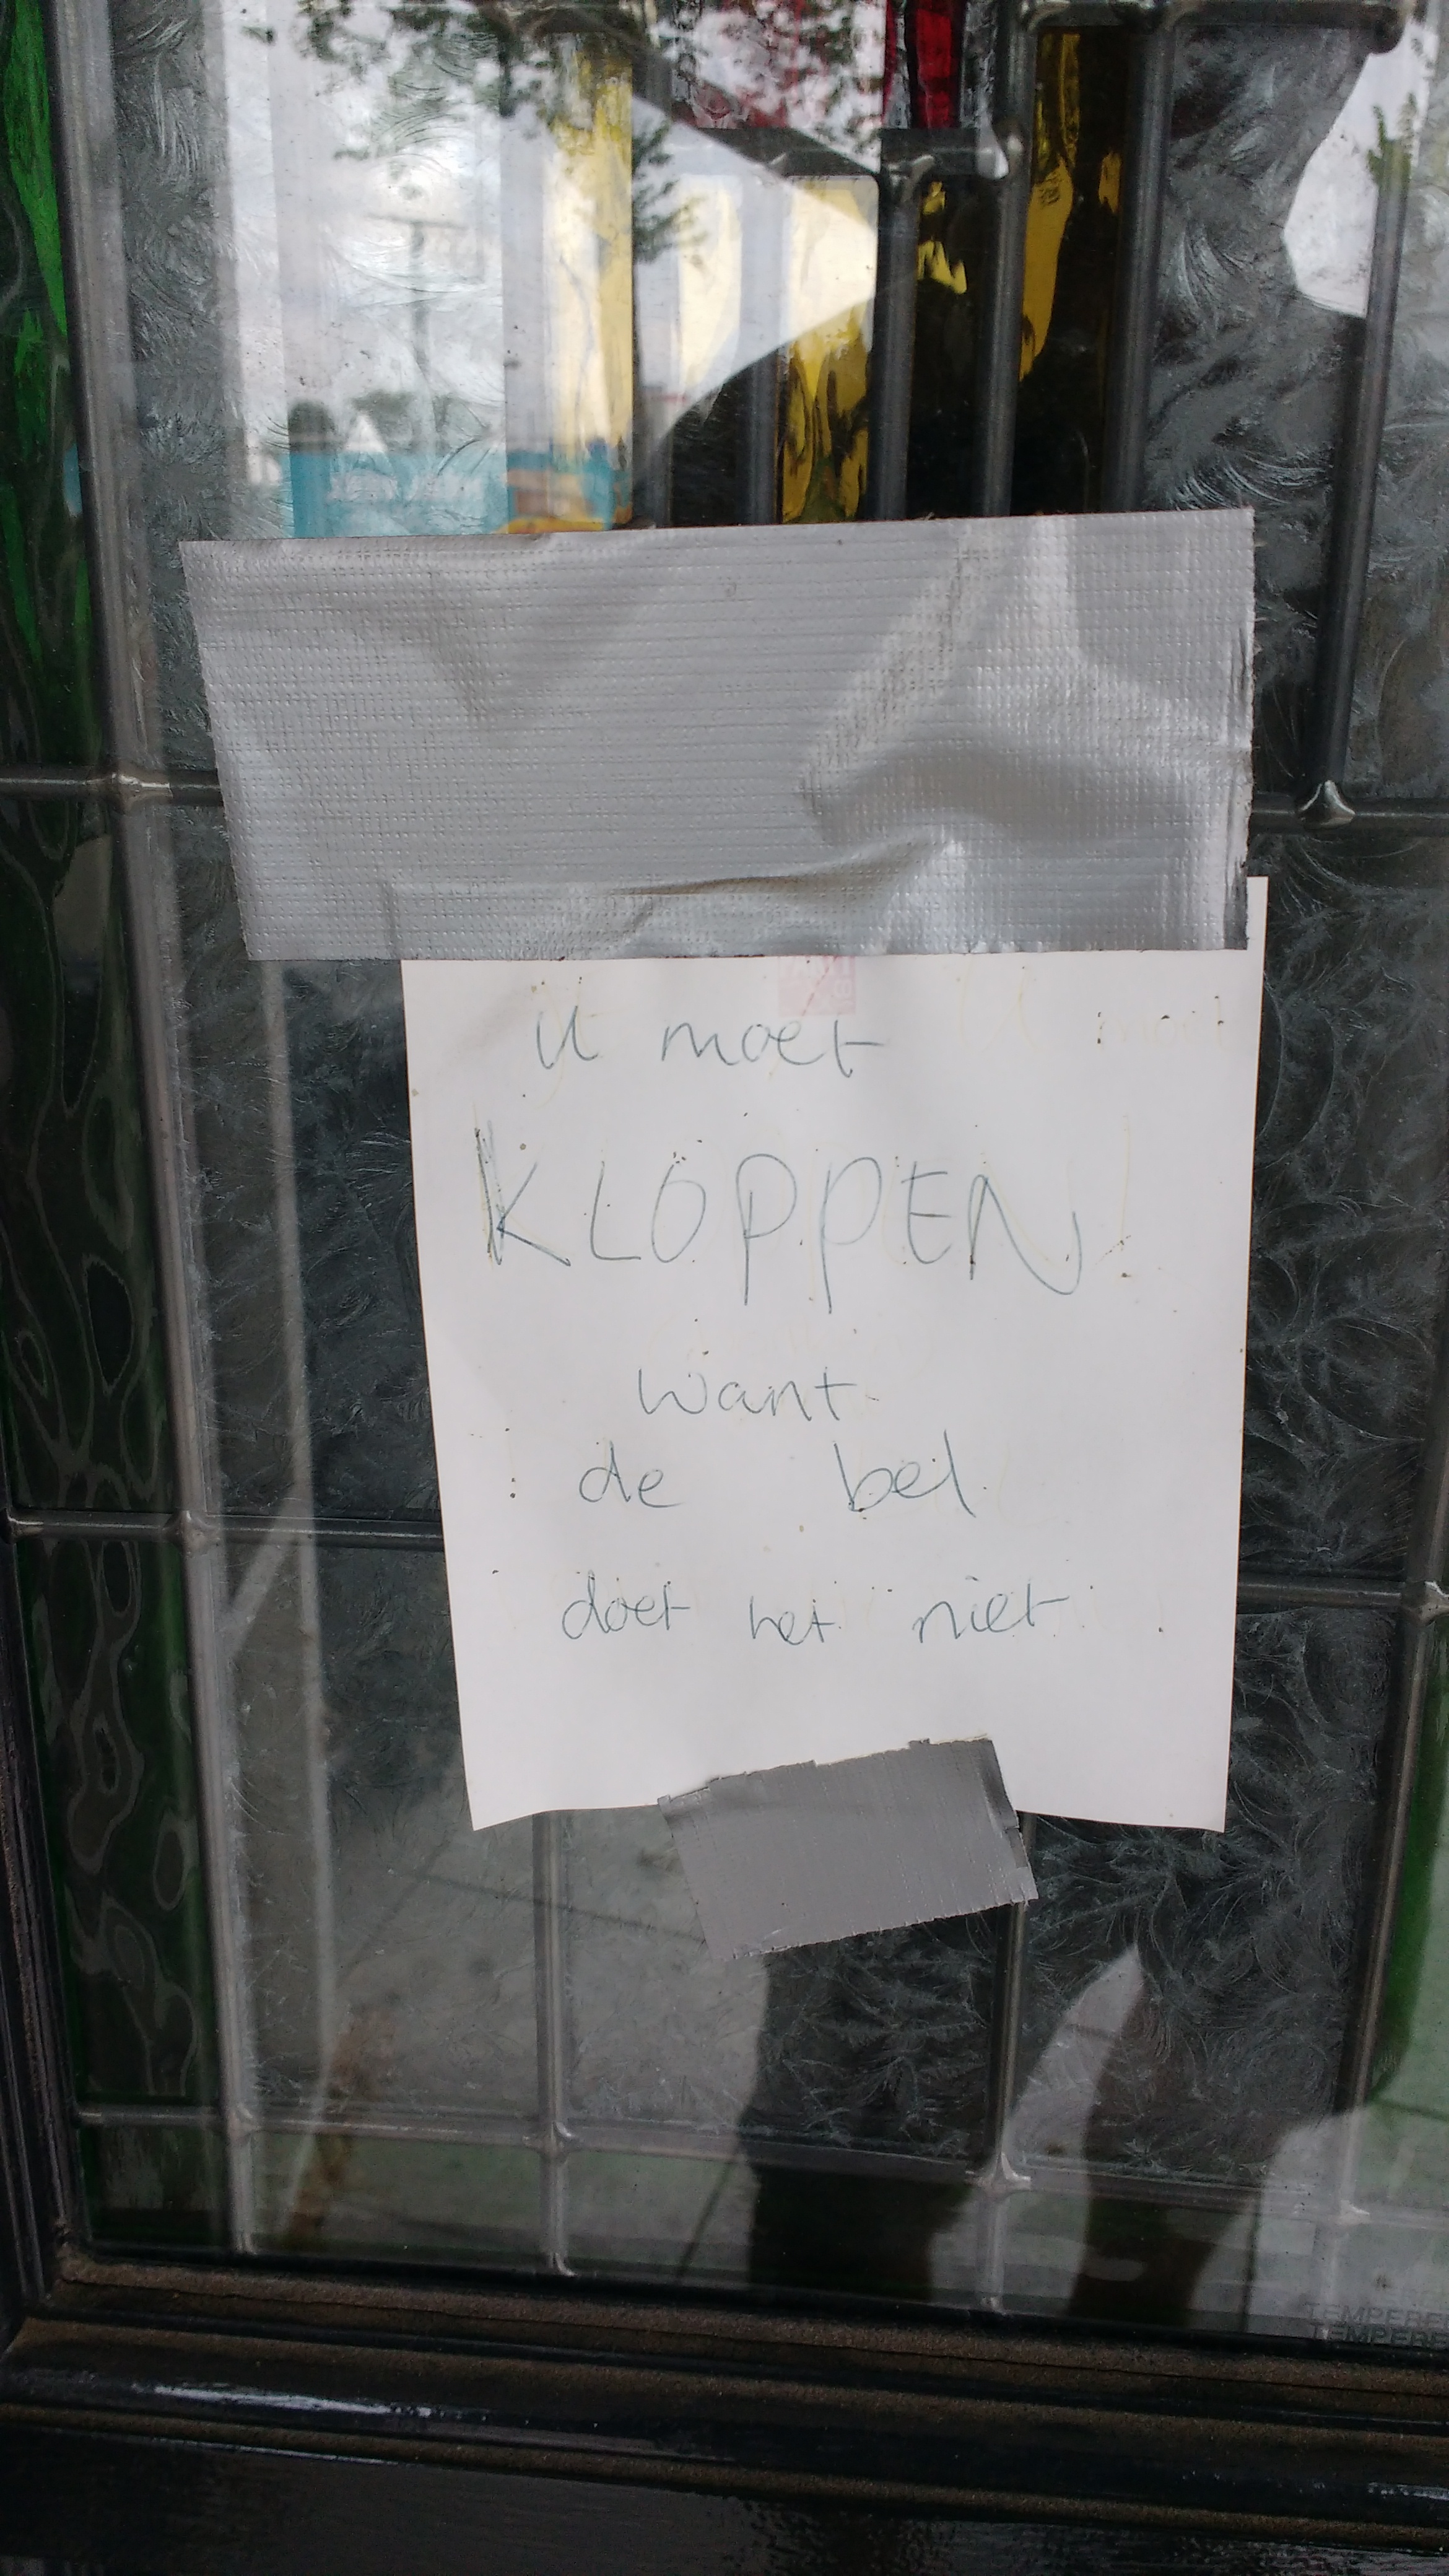 U moet
KLOPPEN!
want
de bel
doet het niet
TEMPERE
TEMPERE